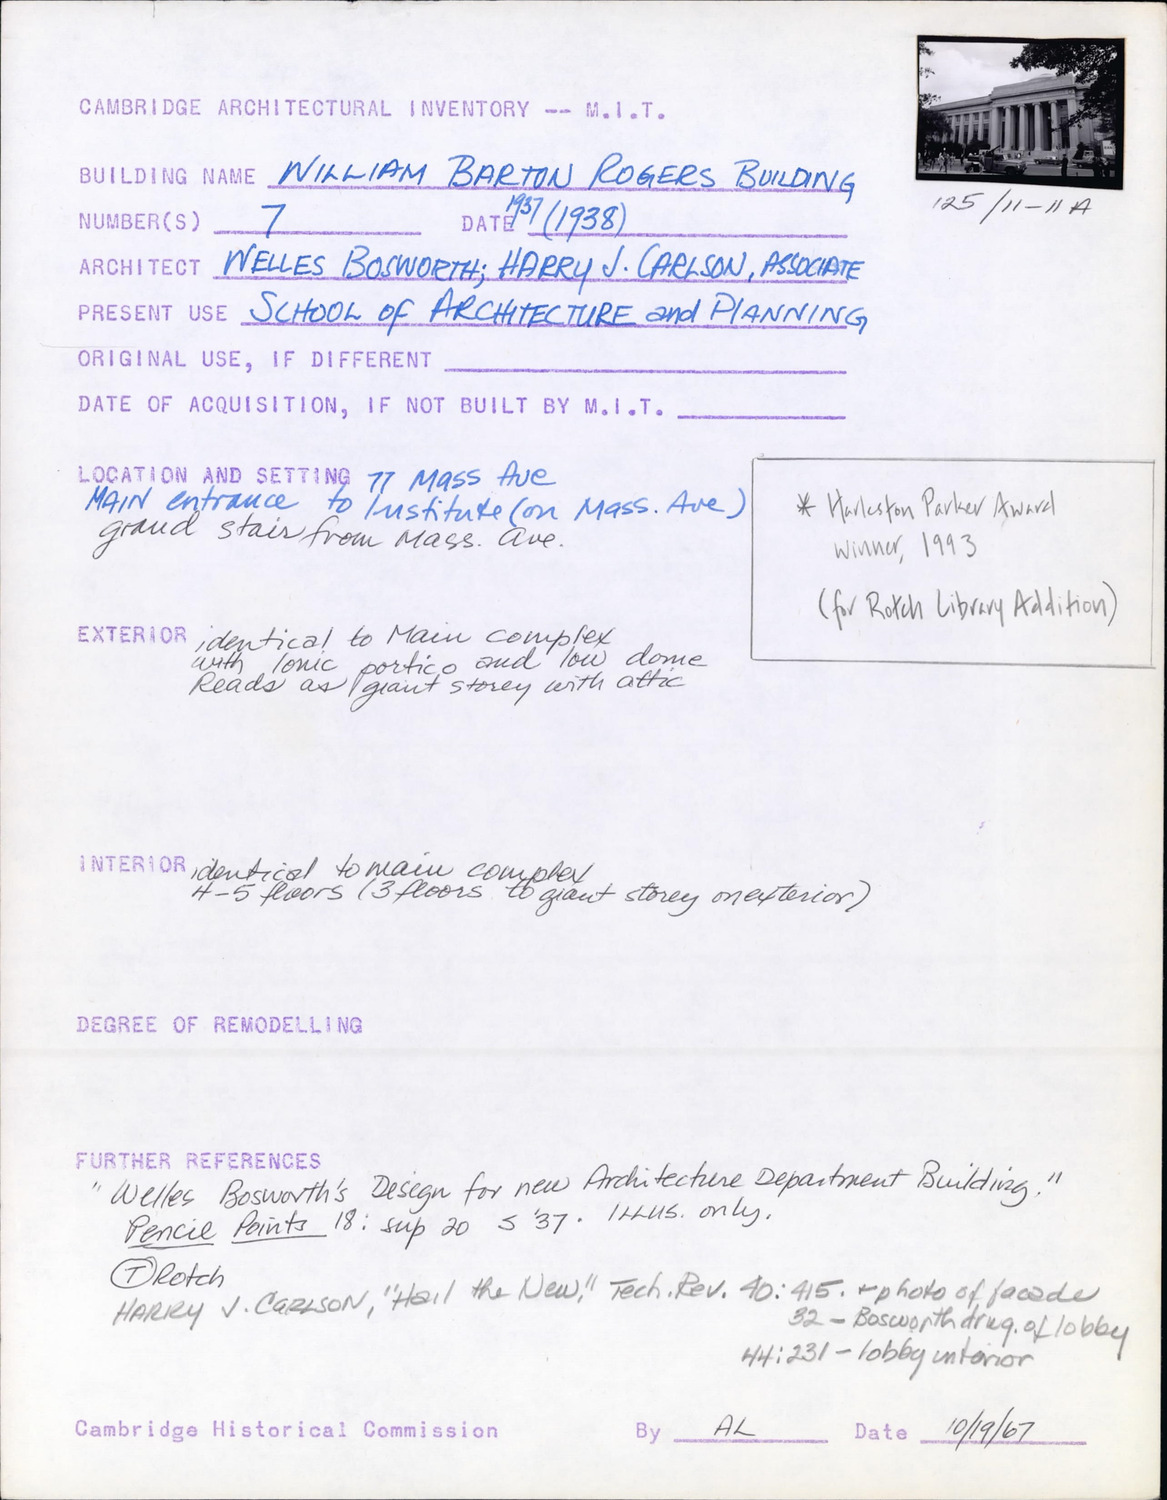 CAMBRIDGE ARCHITECTURAL INVENTORY -- M.I.T.
125/11-11A
BUILDING NAME WILLIAM BARTON ROGERS BUILDING
NUMBER(S) 7 DATE 1937 (1938)
ARCHITECT WELLES BOSWORTH; HARRY J. CARLSON, ASSOCIATE
PRESENT USE SCHOOL OF ARCHITECTURE and PLANNING
ORIGINAL USE, IF DIFFERENT
DATE OF ACQUISITION, IF NOT BUILT BY M.I.T.
LOCATION AND SETTING 77 Mass Ave
MAIN entrance to Institute (on Mass. Ave)
grand stair from Mass. Ave.
* Harleston Parker Award
winner, 1993
(for Rotch Library Addition)
EXTERIOR identical to Main complex
with Ionic portico and low dome
Reads as giant storey with attic
INTERIOR identical to main complex
4-5 floors (3 floors to giant storey on exterior)
DEGREE OF REMODELLING
FURTHER REFERENCES
"Welles Bosworth's Design for new Architecture Department Building."
Pencil Points 18: sup 20 S '37. ILLUS. only.
(T) Rotch
HARRY J. CARLSON, "Hail the New," Tech. Rev. 40: 415. + photo of facade
32 - Bosworth drwg. of lobby
44:231 - lobby interior
Cambridge Historical Commission By AL Date 10/19/67